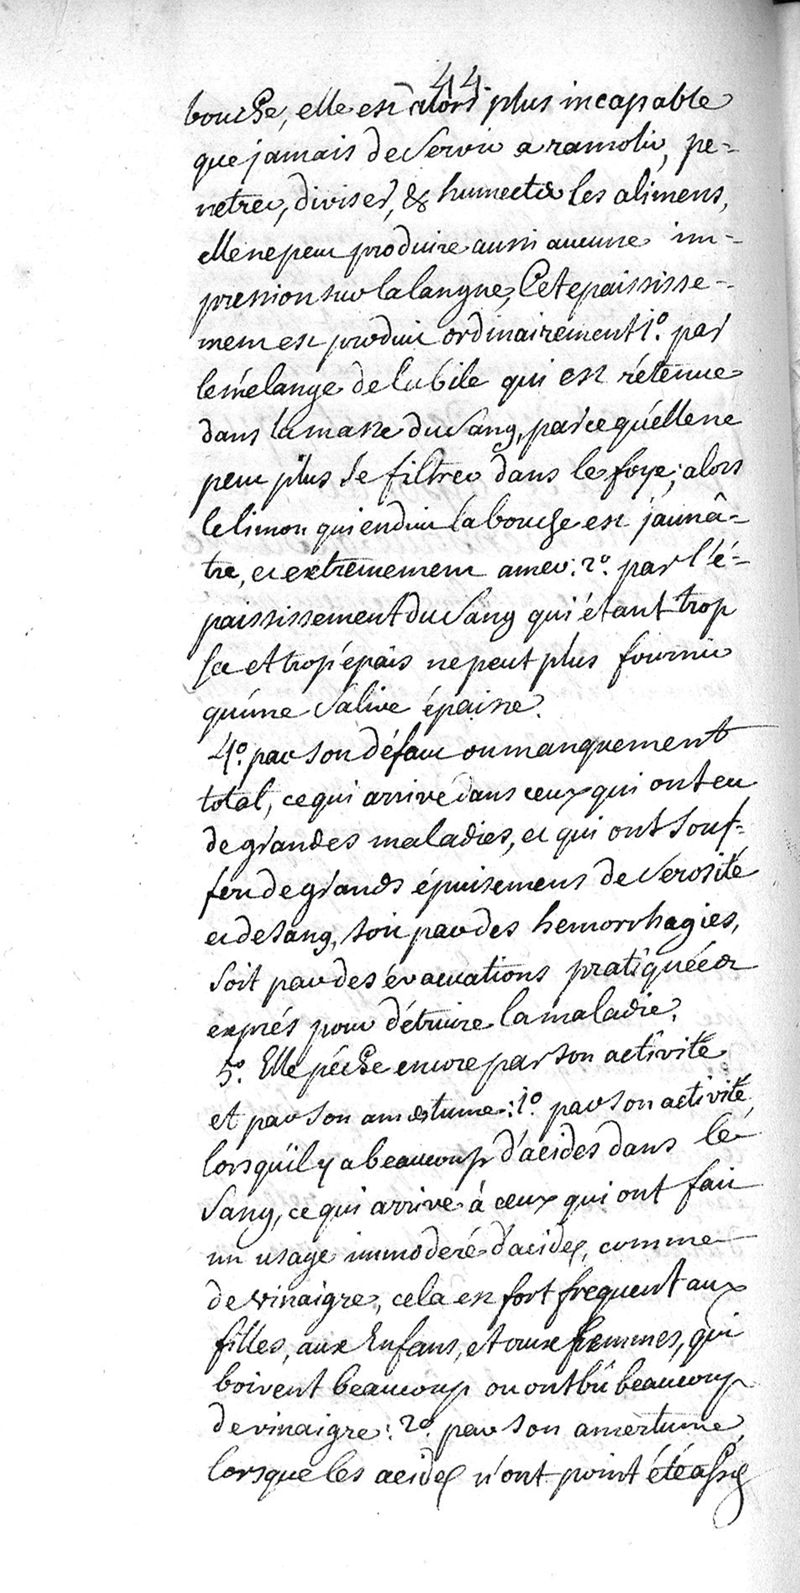 44.
bouche, elle est alors plus incapable
que jamais de servir a ramolir, pe=
netrer, diviser, & humecter les alimens,
elle ne peut produire aussi aucune im=
pression sur la langue, Cet epaississe=
ment est produit ordinairement 1º. par
le mélange de la bile qui est rétenue
dans la masse du sang, parce quéllene
peut plus se filtrer dans le foye; alors
le limon qui enduit la bouche est jaunâ=
tre, et extremement amer: 2º. par l'é=
paississement du sang qui étant trop
sec et trop épais ne peut plus fournir
qu'une salive épaisse.
4º. par son défaut ou manquement
total, ce qui arrive dans ceux qui ont eu
de grandes maladies, et qui ont souf=
fert de grands épuisemens de serosité
et de sang, soit par des hemorrhagies,
soit par des évacuations pratiquées
exprés pour détruire la maladie.
5º. Elle péche encore par son activité
et par son amertume: 1º. par son activité,
lorsqu'il y a beaucoup d'acides dans le
sang, ce qui arrive à ceux qui ont fait
un usage immoderé d'acides, comme
de vinaigre, cela est fort frequent aux
filles, aux Enfans, et aux femmes, qui
boivent beaucoup ou ont bû beaucoup
de vinaigre: 2º. par son amertume,
lorsque les acides n'ont point été assés